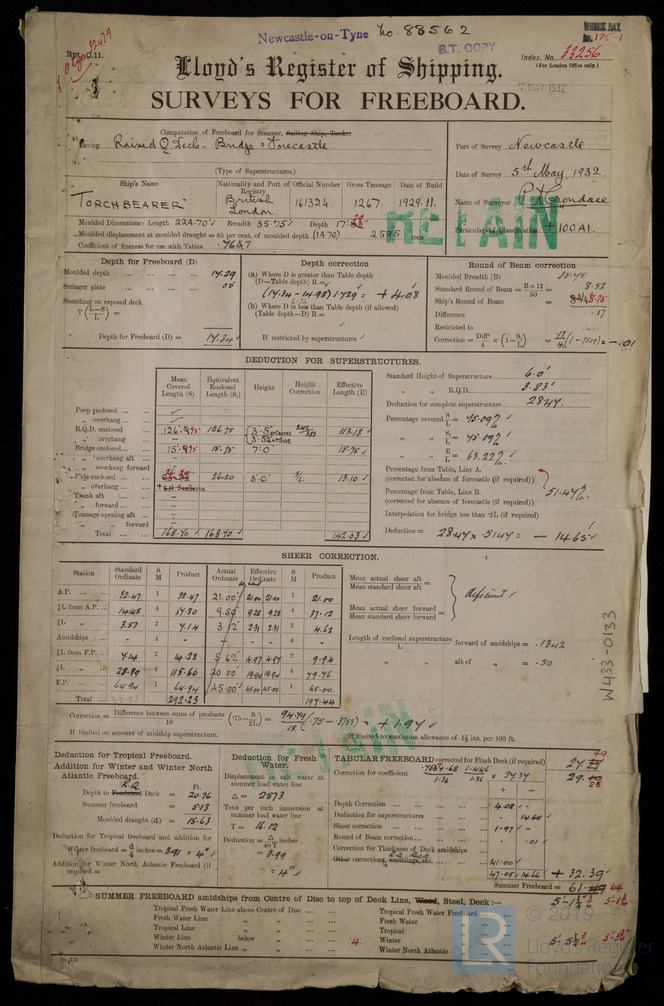 Newcastle-on-Tyne No. 88562
B.T. COPY
Rpt. C.11.
Index. No. 33256
(For London Office only.)
7 MAY 1932
Lloyd's Register of Shipping.
SURVEYS FOR FREEBOARD.
Computation of Freeboard for Steamer, Sailing Ship, Tanker
having Raised Q Deck - Bridge & Forecastle
(Type of Superstructures.)
Port of Survey Newcastle
Date of Survey 5th May, 1932.
Name of Surveyor
Particulars of Classification + 100A1.
RETAIN
Ship's Name
Nationality and Port of Registry
Official Number
Gross Tonnage
Date of Build
"TORCHBEARER"
British London
161324
1267
1929.11.
Moulded Dimensions: Length 224.70 Breadth 35.75 Depth 17.29
Moulded displacement at moulded draught = 85 per cent. of moulded depth (14.70) 2585 tons
Coefficient of fineness for use with Tables
Depth for Freeboard (D)
Moulded depth 17.29
Stringer plate .05
Sheathing on exposed deck
T (L-S / L) =
Depth for Freeboard (D) = 17.34
Depth correction
(a) Where D is greater than Table depth
(D—Table depth) R =
(17.34 - 14.98) 1.729 = + 4.08
(b) Where D is less than Table depth (if allowed)
(Table depth—D) R =
If restricted by superstructures
Round of Beam correction
Moulded Breadth (B) 35.75
Standard Round of Beam = B × 12 / 50 = 8.58
Ship's Round of Beam = 8.75
Difference .17
Restricted to
Correction = Diff / 4 × (1 - S1 / L) = .17 / 4 (1 - .7509) = -.01
DEDUCTION FOR SUPERSTRUCTURES.
Mean Covered Length (S)
Equivalent Enclosed Length (S1)
Height
Height Correction
Effective Length (E)
Poop enclosed
„ overhang
R.Q.D. enclosed 126.75 126.75 113.18
„ overhang
Bridge enclosed 15.75 15.75 7'.0" 15.75
„ overhang aft
„ overhang forward
F'cle enclosed 26.20 26.20 3'.0" 3/6 13.10
„ overhang
Trunk aft
„ forward
Tonnage opening aft
„ „ forward
Total 168.70 168.70 142.03
Standard Height of Superstructure 6.0'
„ „ R.Q.D. 3.83'
Deduction for complete superstructure 28.47
Percentage covered S / L = 75.09%
„ „ S1 / L = 75.09%
„ „ E / L = 63.22%
Percentage from Table, Line A.
(corrected for absence of forecastle (if required))
Percentage from Table, Line B. 51.47%
(corrected for absence of forecastle (if required))
Interpolation for bridge less than .2L (if required)
Deduction = 28.47 × .5147 = - 14.65
SHEER CORRECTION.
Station
Standard Ordinate
S M
Product
Actual Ordinate
Effective Ordinate
S M
Product
A.P. 32.47 1 32.47 21.00 21.00 21.00 1 21.00
⅙L from A.P. 14.45 4 57.80 9.50 9.28 9.28 4 37.12
⅓L „ 3.57 2 7.14 3.12 2.31 2.31 2 4.62
Amidships - 4 - - 4 -
⅓L from F.P. 7.14 2 14.28 5.62 4.97 4.97 2 9.94
⅙L „ 28.90 4 115.60 20.00 19.94 19.94 4 79.76
F.P. 64.94 1 64.94 45.00 45.00 45.00 1 45.00
Total 292.23 197.44
Mean actual sheer aft / Mean standard sheer aft =
Mean actual sheer forward / Mean standard sheer forward =
deficient
Length of enclosed superstructure / L forward of amidships = .1342
„ „ aft of „ = .50
Correction = Difference between sums of products / 18 (.75 - S / 2L) = 94.79 / 18 (.75 - .3755) = + 1.97
If limited on account of midship superstructure.
If limited to maximum allowance of 1½ ins. per 100 ft.
W433-0133
RETAIN
Deduction for Tropical Freeboard.
Addition for Winter and Winter North Atlantic Freeboard.
Ft.
Depth to R.Q Freeboard Deck = 20.76
Summer freeboard = 5.13
Moulded draught (d) = 15.63
Deduction for Tropical freeboard and addition for Winter freeboard = d / 4 inches = 3.91 = 4"
Addition for Winter North Atlantic Freeboard (if required) =
Deduction for Fresh Water.
Displacement in salt water at summer load water line
Δ = 2573
Tons per inch immersion at summer load water line
T = 16.12
Deduction = Δ / 40 T inches
= 3.99
= 4"
TABULAR FREEBOARD corrected for Flush Deck (if required)
Correction for coefficient
+ -
Depth Correction 4.08
Deduction for superstructures 14.65
Sheer correction 1.97
Round of Beam correction .01
Correction for Thickness of Deck amidships
Other corrections, scantlings, etc. R.Q. Deck 41.00
47.05 14.66 + 32.39
Summer Freeboard = 61.64
SUMMER FREEBOARD amidships from Centre of Disc to top of Deck Line, Wood, Steel, Deck :—
Tropical Fresh Water Line above Centre of Disc
Fresh Water Line „ „
Tropical Line „ „
Winter Line below „ 4
Winter North Atlantic Line „ „
Tropical Fresh Water Freeboard
Fresh Water „
Tropical „
Winter „
Winter North Atlantic „
© 2019
Lloyd's Register
Foundation
LR